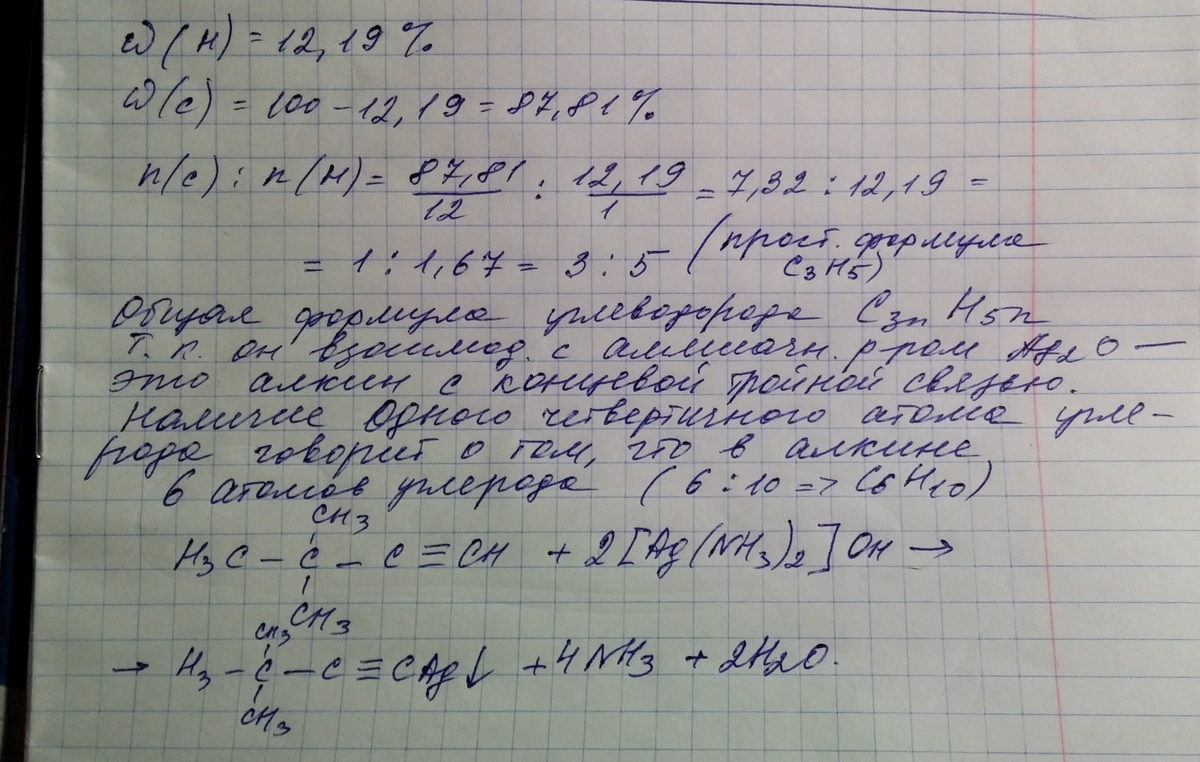 ω(H) = 12,19 %
ω(C) = 100 - 12,19 = 87,81 %
n(C) : n(H) = 87,81/12 : 12,19/1 = 7,32 : 12,19 =
= 1 : 1,67 = 3 : 5 (прост. формула C3H5)
Общая формула углеводорода C3nH5n
Т. к. он взаимод. с аммиачн. р-ром Ag2O —
это алкин с концевой тройной связью.
Наличие одного четвертичного атома угле-
рода говорит о том, что в алкине
6 атомов углерода (6 : 10 => C6H10)
CH3
H3C - C - C ≡ CH + 2[Ag(NH3)2]OH →
CH3
CH3
→ H3 - C - C ≡ CAg↓ + 4NH3 + 2H2O.
CH3